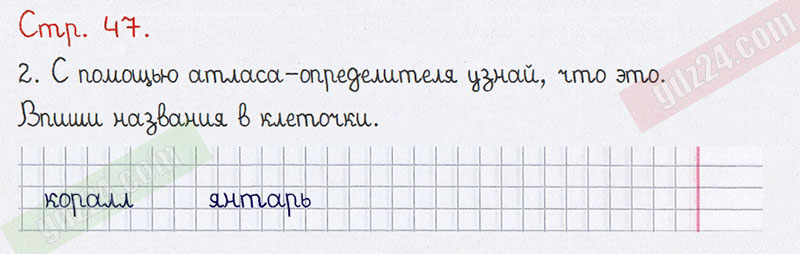 Стр. 47.
2. С помощью атласа-определителя узнай, что это.
Впиши названия в клеточки.
коралл янтарь
gdz24.com
gdz24.com